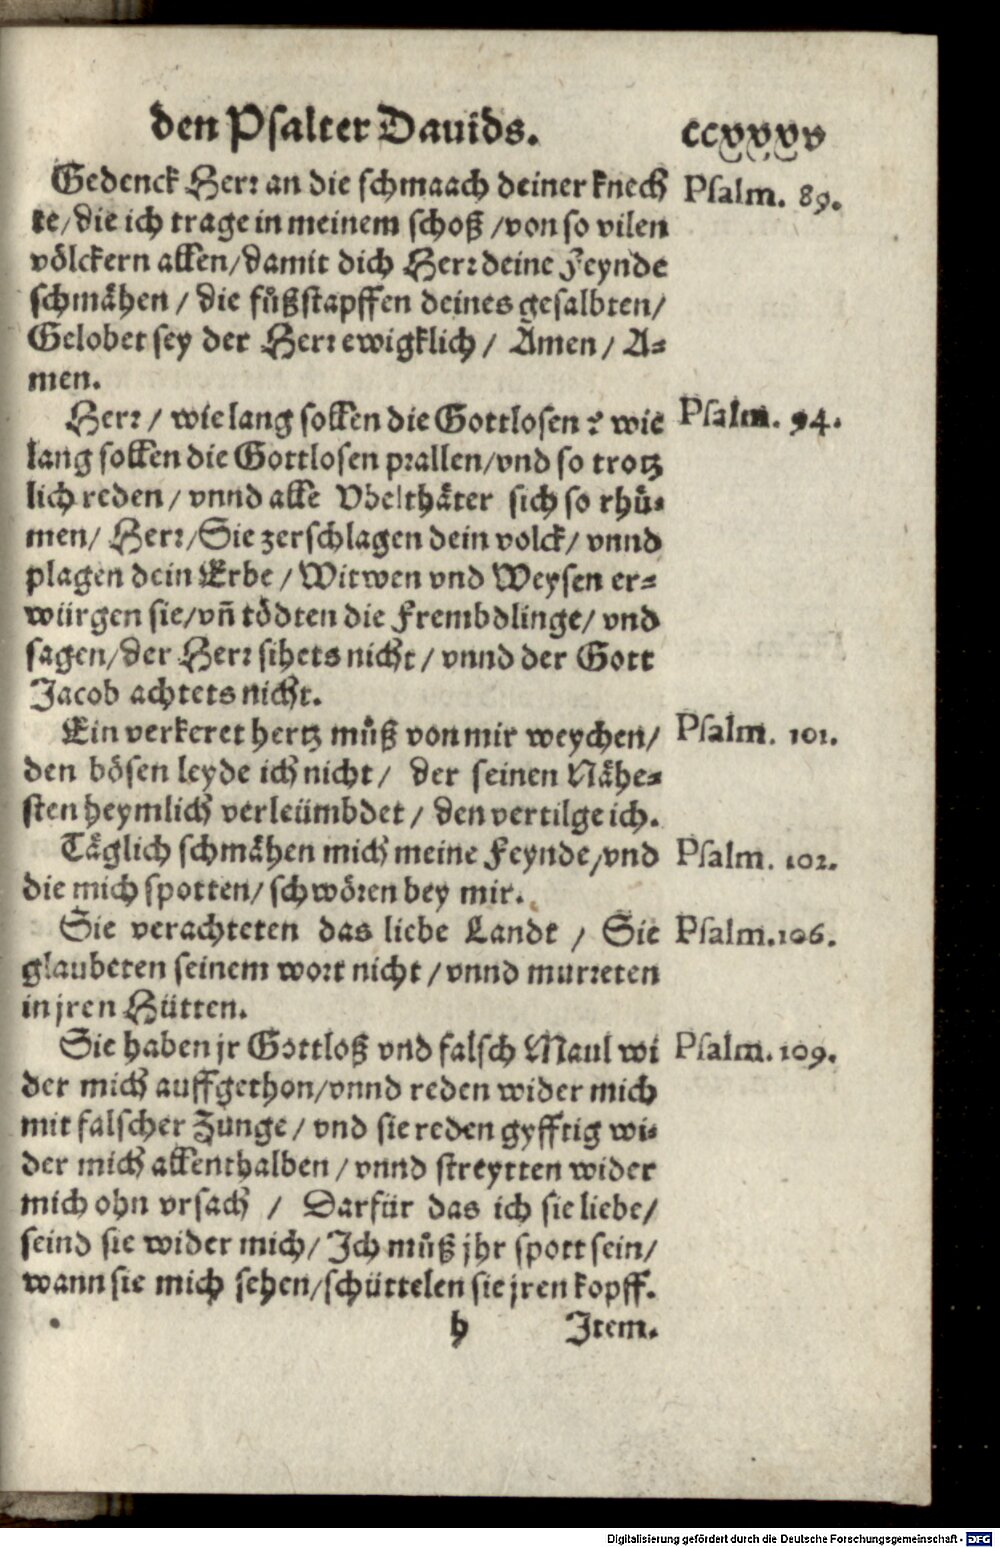 den Psalter Dauids. ccxxxv
Gedenck Herr an die schmaach deiner knech Psalm. 89.
te/die ich trage in meinem schoß /von so vilen
völckern allen/damit dich Herr deine Feynde
schmähen / die fůßstapffen deines gesalbten/
Gelobet sey der Herr ewigklich / Amen / A⸗
men.
Herr / wie lang sollen die Gottlosen ? wie Psalm. 94.
lang sollen die Gottlosen prallen/vnd so trotz
lich reden / vnnd alle Vbelthäter sich so rhů⸗
men/ Herr/Sie zerschlagen dein volck/ vnnd
plagen dein Erbe / Witwen vnd Weysen er⸗
würgen sie/vñ tödten die Frembdlinge/ vnd
sagen/der Herr sihets nicht / vnnd der Gott
Jacob achtets nicht.
Ein verkeret hertz můß von mir weychen/ Psalm. 101.
den bösen leyde ich nicht / der seinen Nähe⸗
sten heymlich verleümbdet / den vertilge ich.
Täglich schmähen mich meine Feynde/vnd Psalm. 102.
die mich spotten/ schwören bey mir.
Sie verachteten das liebe Landt / Sie Psalm.106.
glaubeten seinem wort nicht / vnnd murreten
in jren Hütten.
Sie haben jr Gottloß vnd falsch Maul wi Psalm. 109.
der mich auffgethon/vnnd reden wider mich
mit falscher Zunge / vnd sie reden gyfftig wi⸗
der mich allenthalben / vnnd streytten wider
mich ohn vrsach / Darfür das ich sie liebe/
seind sie wider mich/ Ich můß jhr spott sein/
wann sie mich sehen/schüttelen sie jren kopff.
h Item.
Digitalisierung gefördert durch die Deutsche Forschungsgemeinschaft - DFG